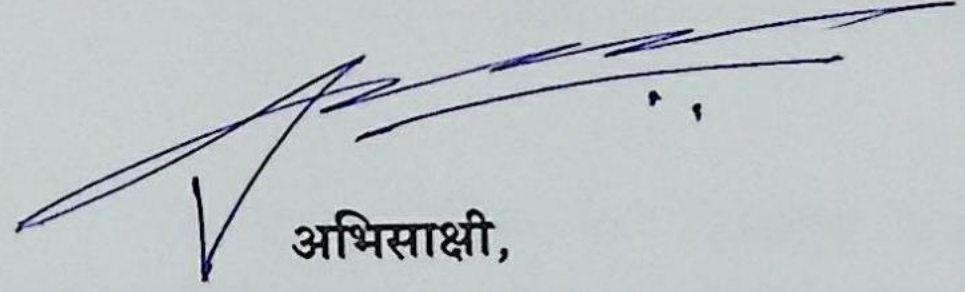 अभिसाक्षी,